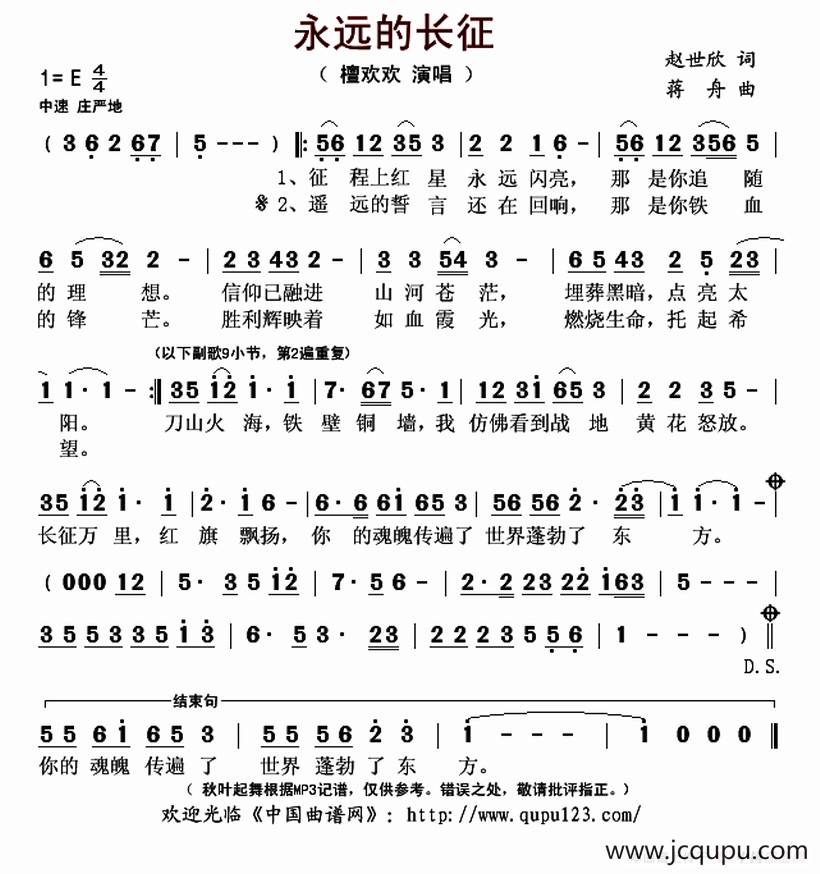 永远的长征
1= E 4/4
（ 檀欢欢 演唱 ）
赵世欣 词
中速 庄严地
蒋 舟 曲
( 3 6 2 67 | 5 - - - ) ‖: 56 12 35 3 | 2 2 1 6 - | 56 12 356 5 |
1、征 程上红 星 永 远 闪亮， 那 是你追 随
𝄋 2、遥 远的誓 言 还 在 回响， 那 是你铁 血
6 5 32 2 - | 2 3 43 2 - | 3 3 54 3 - | 6 5 43 2 5 23 |
的 理 想。 信仰已融进 山 河 苍 茫， 埋葬黑暗，点 亮 太
的 锋 芒。 胜利辉映着 如 血 霞 光， 燃烧生命，托 起 希
（以下副歌9小节，第2遍重复）
1 1· 1 - :‖ 35 i2 i· i | 7· 67 5· 1 | 12 3i 65 3 | 2 2 3 5 - |
阳。 刀山火 海，铁 壁 铜 墙，我 仿佛看到战 地 黄 花 怒放。
望。
35 i2 i· i | 2· i 6 - | 6· 6 6i 65 3 | 56 56 2· 23 | i i· i - |
长征万 里，红 旗 飘扬， 你 的魂魄传遍了 世界蓬勃了 东 方。
( 000 12 | 5· 3 5 i2 | 7· 5 6 - | 2· 2 23 22 i63 | 5 - - - |
3 5 5 3 3 5 i 3 | 6· 5 3· 23 | 2 2 2 3 5 5 6 | 1 - - - ) ‖
D.S.
结束句
5 5 6 i 6 5 3 | 5 5 5 6 2 3 | i - - - | i 0 0 0 ‖
你的 魂魄 传遍 了 世界 蓬勃 了 东 方。
（ 秋叶起舞根据MP3记谱，仅供参考。错误之处，敬请批评指正。）
欢迎光临《中国曲谱网》：http://www.qupu123.com/
www.jcqupu.com